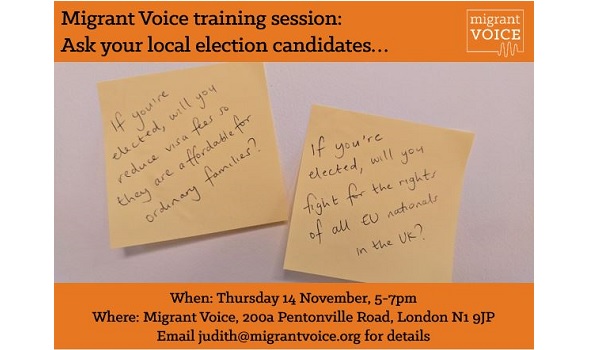 Migrant Voice training session:
Ask your local election candidates...
migrant
VOICE
If you're
elected, will you
reduce visa fees so
they are affordable for
ordinary families?
If you're
elected, will you
fight for the rights
of all EU nationals
in the UK?
When: Thursday 14 November, 5-7pm
Where: Migrant Voice, 200a Pentonville Road, London N1 9JP
Email judith@migrantvoice.org for details